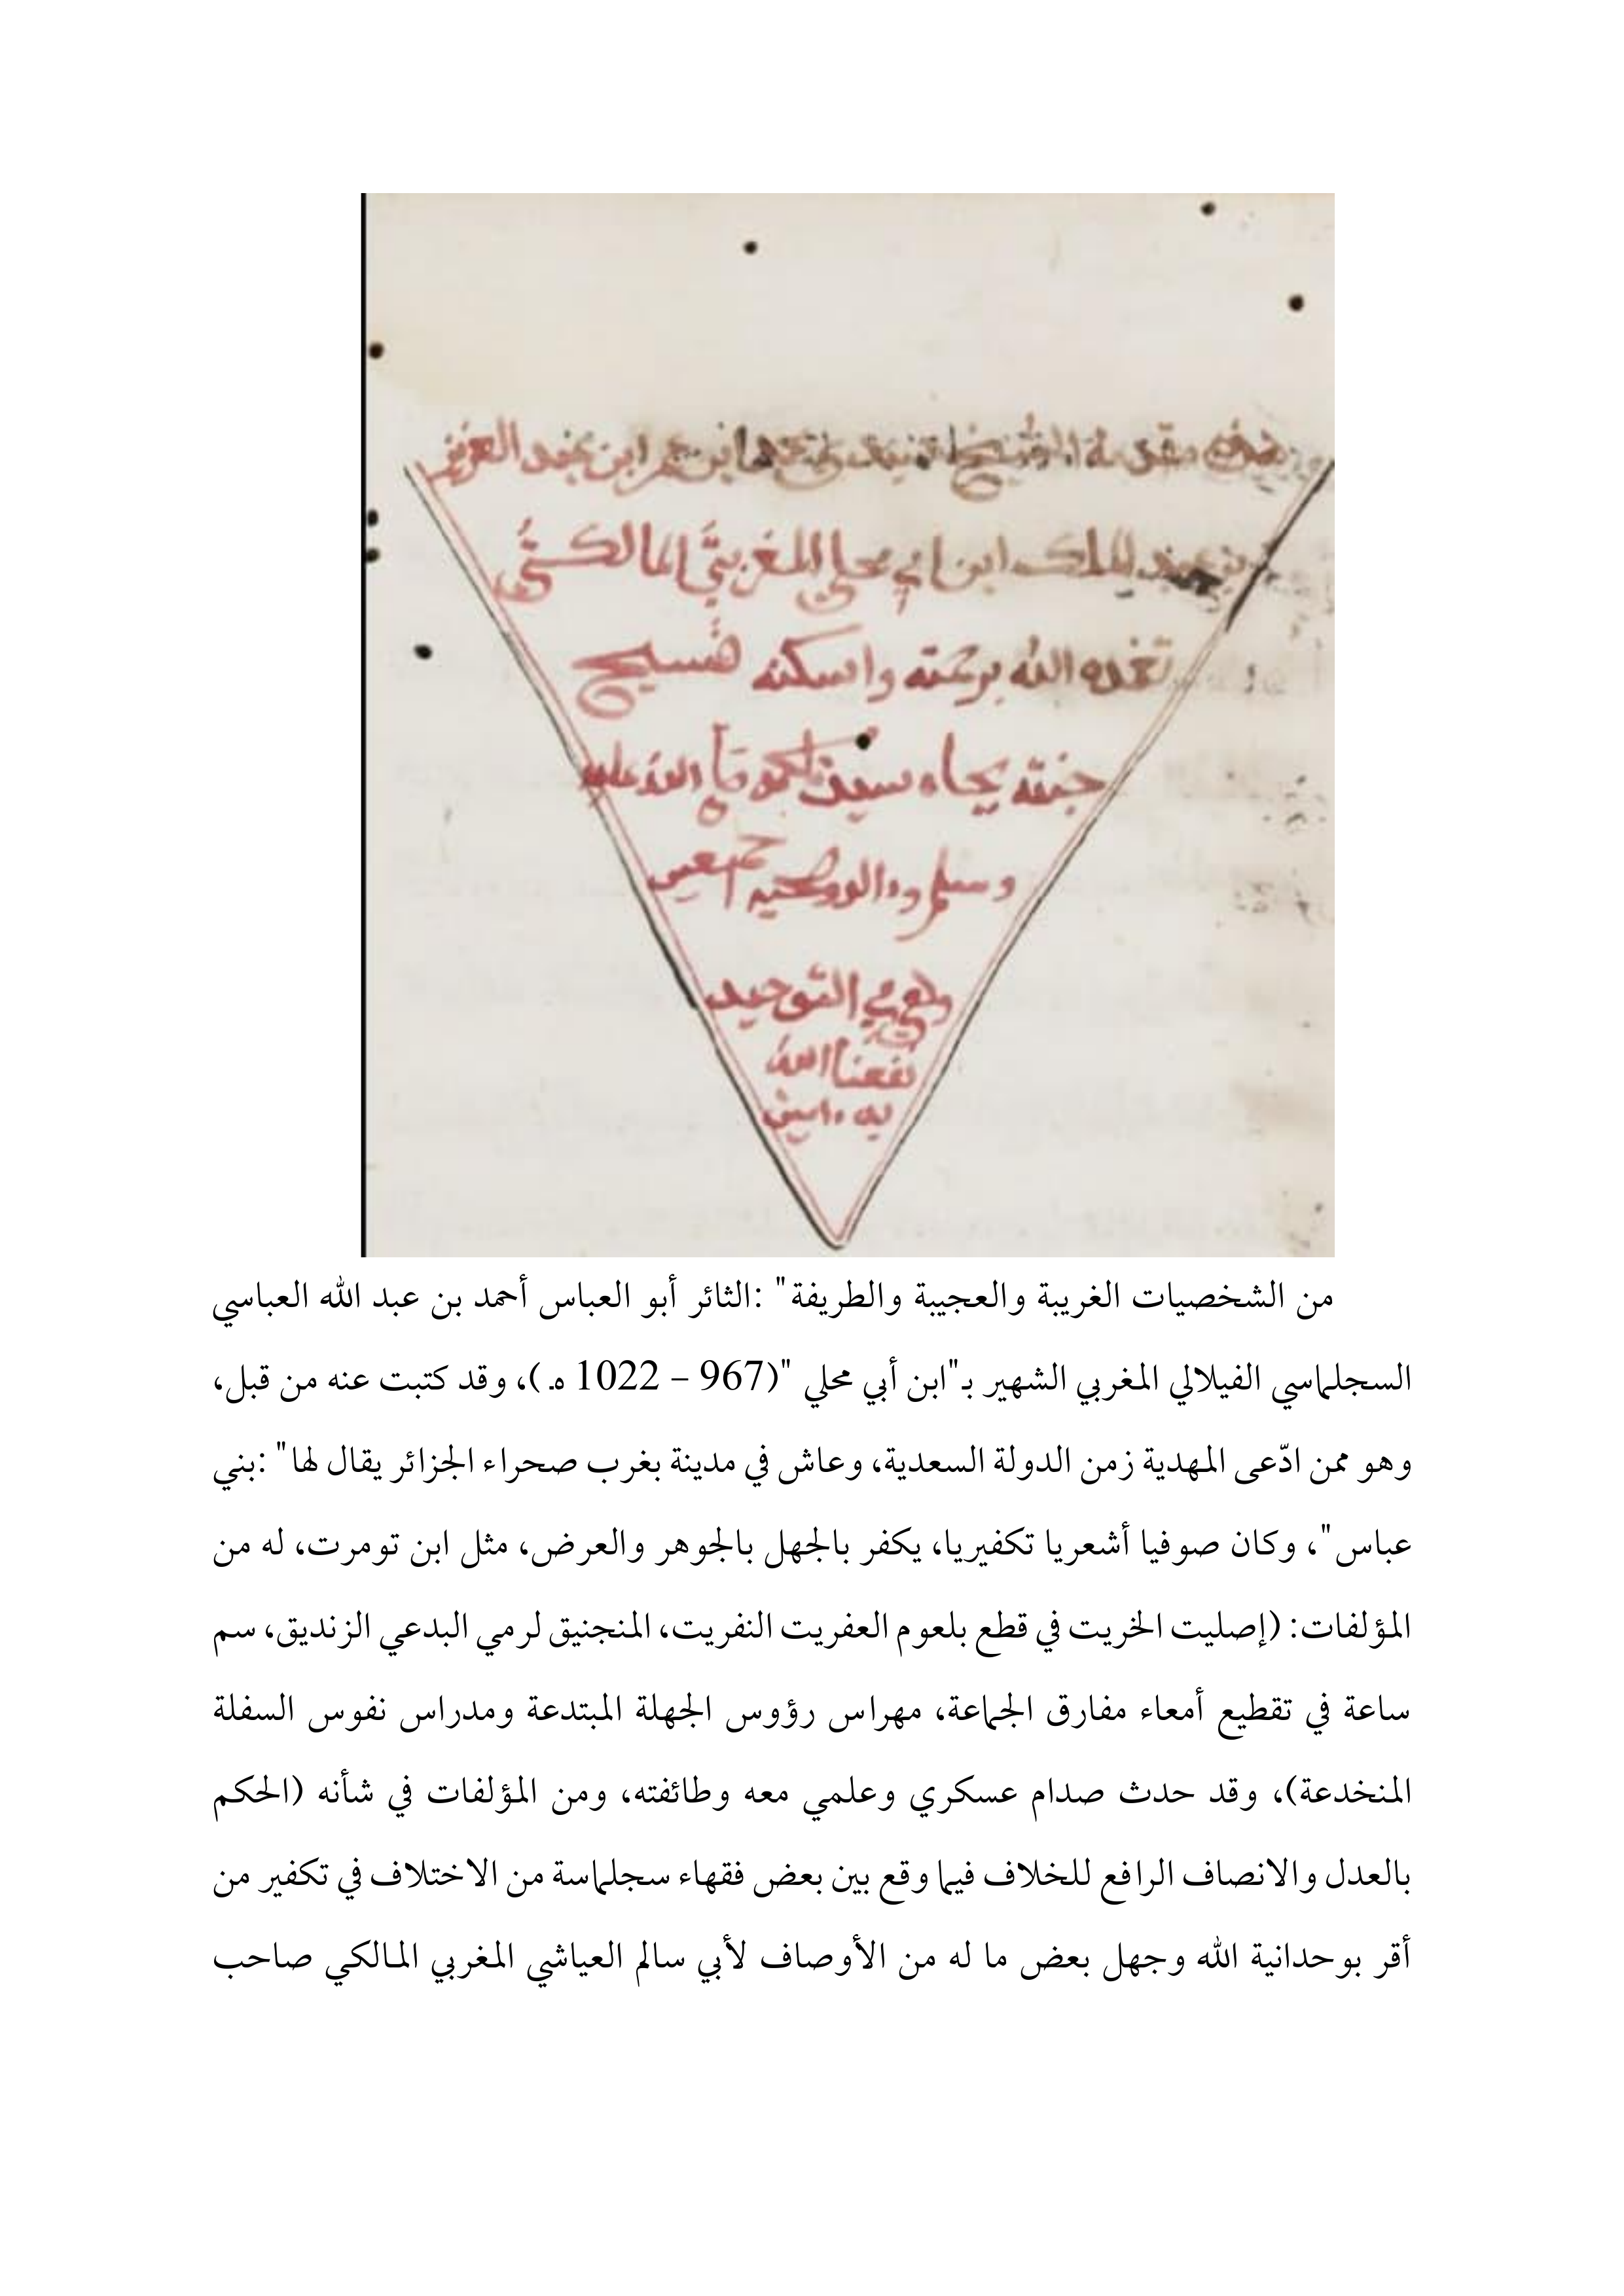 ابن عمر ابن عبد العزيز
عبد الملك ابن ابي محلي المغربي المالكي
تغمده الله برحمته واسكنه فسيح
جنته بجاه سيدنا صلى الله عليه
وسلم وءاله وصحبه اجمعين
في التوحيد
نفعنا الله
به ءامين
من الشخصيات الغريبة والعجيبة والطريفة" :الثائر أبو العباس أحمد بن عبد الله العباسي
السجلماسي الفيلالي المغربي الشهير بـ"ابن أبي محلي "(967 – 1022 هـ)، وقد كتبت عنه من قبل،
وهو ممن ادّعى المهدية زمن الدولة السعدية، وعاش في مدينة بغرب صحراء الجزائر يقال لها" :بني
عباس"، وكان صوفيا أشعريا تكفيريا، يكفر بالجهل بالجوهر والعرض، مثل ابن تومرت، له من
المؤلفات: (إصليت الخريت في قطع بلعوم العفريت النفريت، المنجنيق لرمي البدعي الزنديق، سم
ساعة في تقطيع أمعاء مفارق الجماعة، مهراس رؤوس الجهلة المبتدعة ومدراس نفوس السفلة
المنخدعة)، وقد حدث صدام عسكري وعلمي معه وطائفته، ومن المؤلفات في شأنه (الحكم
بالعدل والانصاف الرافع للخلاف فيما وقع بين بعض فقهاء سجلماسة من الاختلاف في تكفير من
أقر بوحدانية الله وجهل بعض ما له من الأوصاف لأبي سالم العياشي المغربي المالكي صاحب